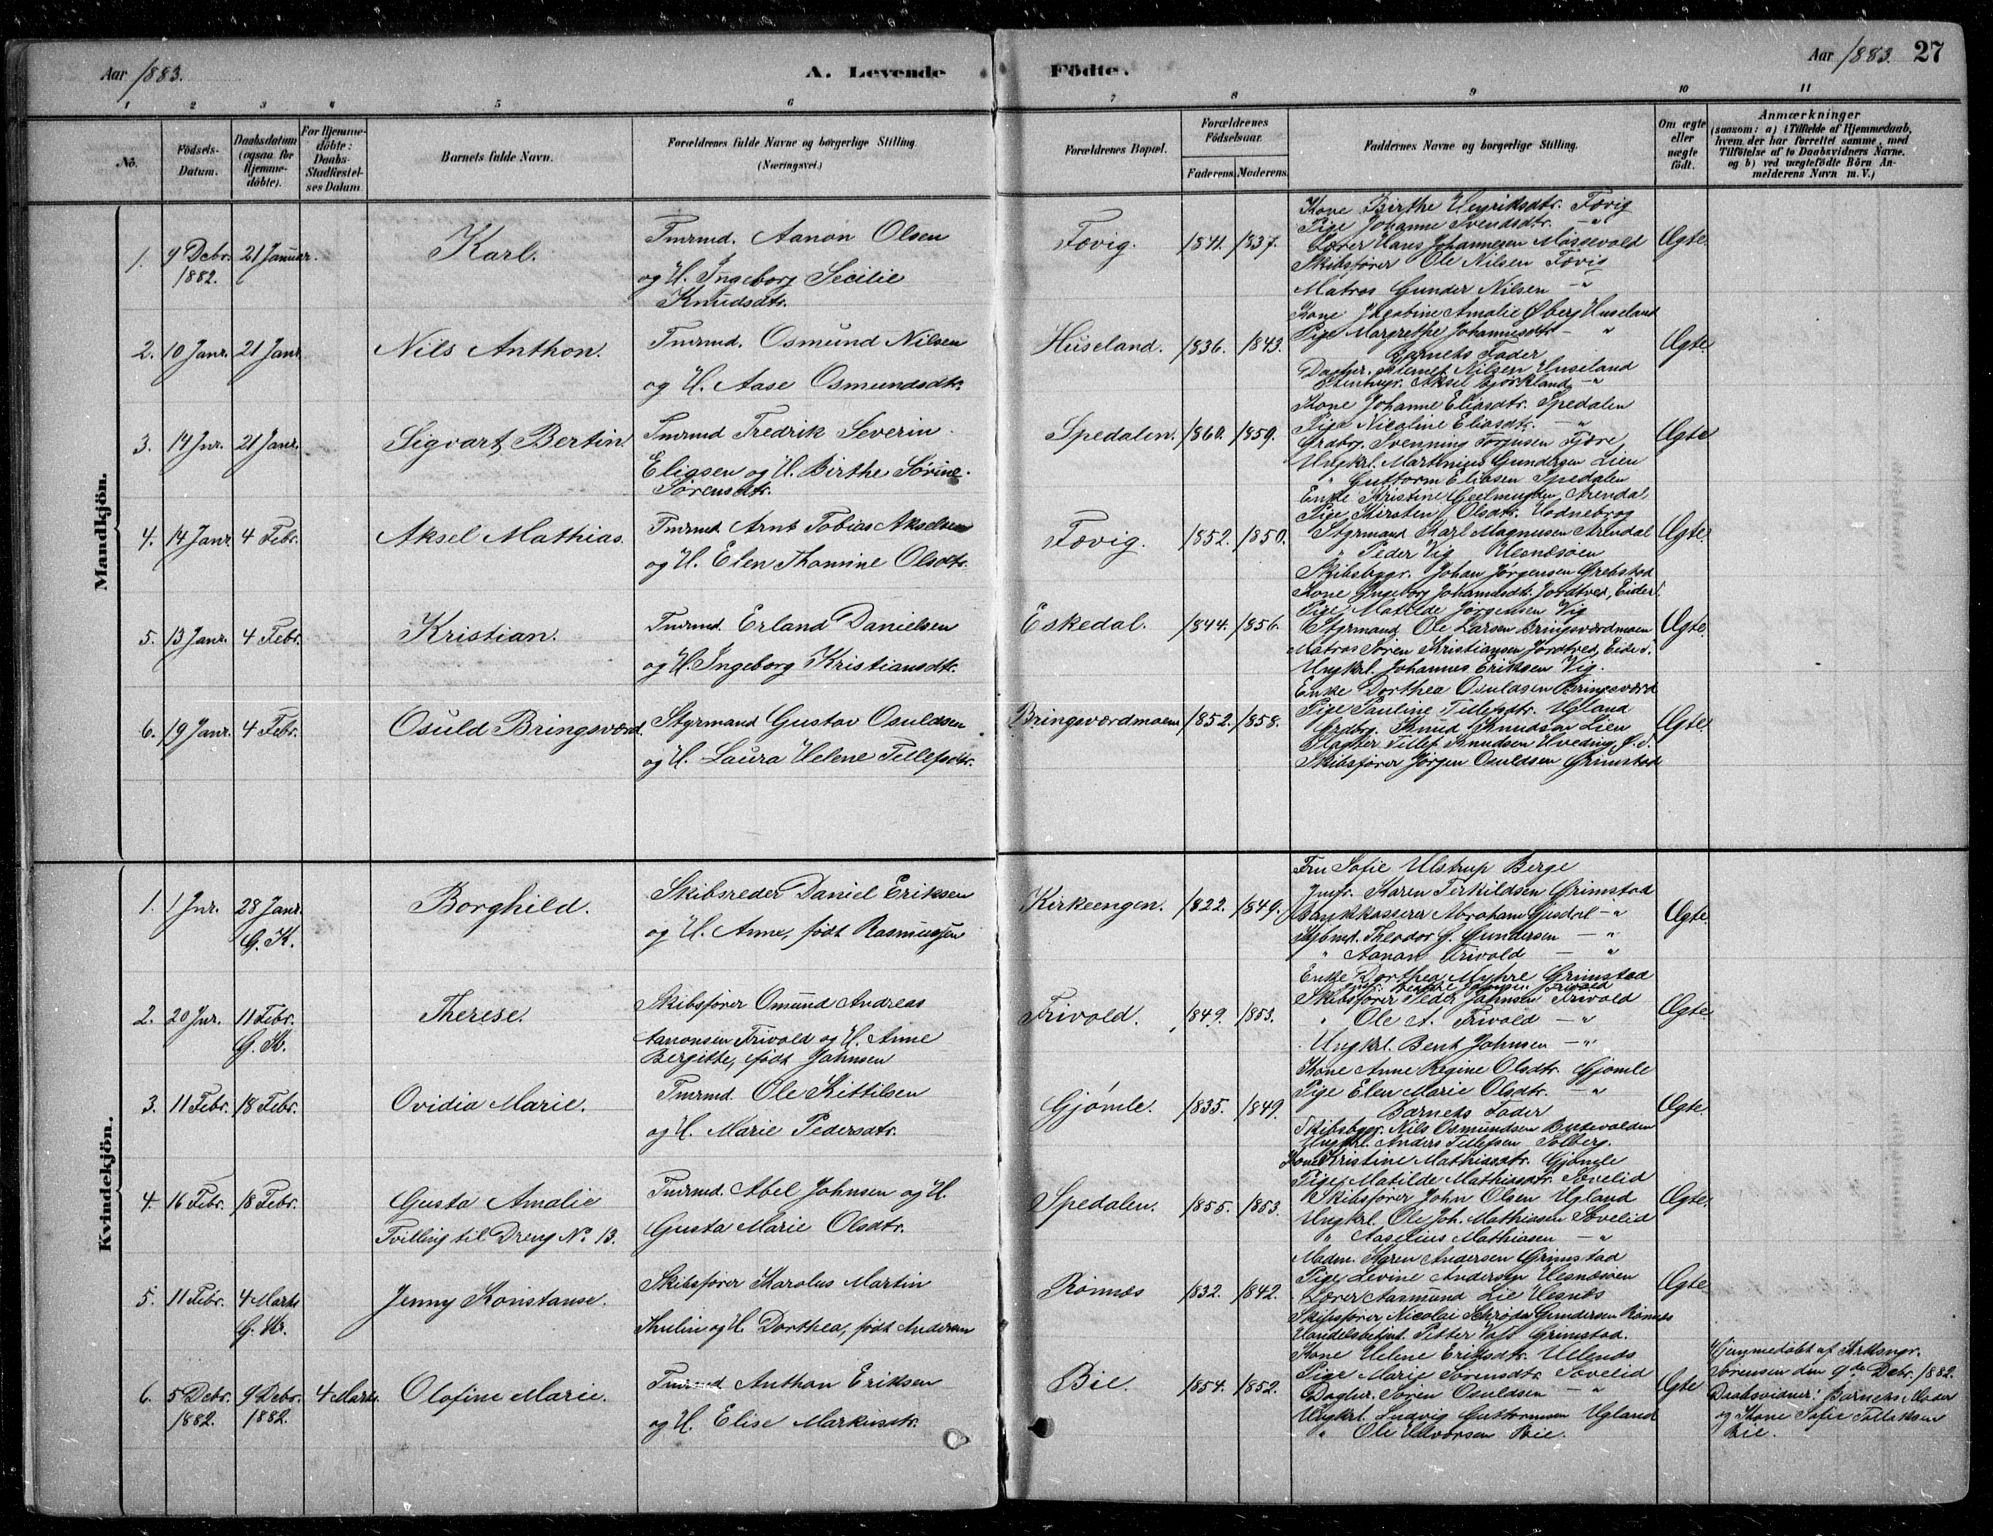 Aar 1883.
A. Levende Födte.
Aar 1883. 27
1 2 3 4 5 6 7 8 9 10 11
No.
Födsels-
Datum.
Daabsdatum
(ogsaa for
Hjemme-
döbte).
For Hjemme-
döbte:
Daabs-
Stadfæstel-
ses Datum.
Barnets fulde Navn.
Forældrenes fulde Navne og borgerlige Stilling
(Næringsvei.)
Forældrenes Bopæl.
Forældrenes
Födselsaar.
Faderens. Moderens.
Faddernes Navne og borgerlige Stilling.
Om ægte
eller
uægte
født.
Anmærkninger
(saasom: a) i Tilfælde af Hjemmedaab,
hvem der har forrettet samme, med
Tilföielse af to Daabsvidners Navne.
og b) ved uægtefödte Börn An-
melderens Navn m. V.)
Mandkjön.
1. 9 Debr. 1882. 21 Januar. Karl.
Tmrmd. Aanon Olsen
og H. Ingeborg Secilie
Knudsdtr.
Fævig. 1841. 1837.
Kone Birthe Henriksdtr. Fævig
Pige Johanne Svendsdtr. —"
Lærer Hans Johannesen Møssevold
Skibsfører Ole Nilsen Fævig
Matros Gunder Nilsen —"
Ægte.
2. 10 Janr. 21 Janr. Nils Anthon.
Tmrmd. Osmund Nilsen
og H. Aase Osmundsdtr.
Huseland. 1836. 1843.
Kone Jacobine Amalie Øberg Huseland
Pige Margrethe Johannesdtr. — "
Barnets Fader
Nilsen Huseland
Aksel Bjørkland —"
Ægte
3. 14 Jnr. 21 Janr. Sigvart Bertin.
Tmrmd Fredrik Severin
Eliasen og H. Birthe Sørine
Sørensdtr.
Spedalen. 1860. 1859.
Kone Johanne Eliasdtr. Spedalen
Pige Nicoline Eliasdtr. —"
Grdbrg. Svenning Torgensen Fjære
Ungkrl. Martinius Gundersen Lien
" Guttorm Eliasen Spedalen
Ægte
4. 14 Janr. 4 Febr. Aksel Mathias.
Tmrmd Arnt Tobias Akselsen
og H. Elen Thomine Olsdtr.
Fævig. 1852. 1850.
Enke Kristine Geelmuyden Arendal
Pige Kirsten Olsdtr. Vadnebrog
Styrmand Karl Magnusen Arendal
" Peder Vig Hesnæsøen
Skibsbyggr. Johan Jørgensen Grebstad
Ægte.
5. 13 Janr. 4 Febr. Kristian.
Tmrmd. Erland Danielsen
og H. Ingeborg Kristiansdtr.
Eskedal. 1844. 1856.
Kone Ingeborg Johannsdtr. Jortved, Eide S.
Pige Matilde Jørgensen Vig
Styrmand Ole Larsen Bringsværdmoen
Matros Søren Kristiansen Jordtved, Eide S.
Ungkrl. Johannes Eriksen Vig.
Ægte.
6. 19 Janr. 4 Febr. Osuld Bringsværd
Styrmand Gustav Osuldsen
og H. Laura Helene Tellefsdtr.
Bringsværdmoen 1852. 1858.
Enke Dorthea Osuldsen Bringsværd
Pige Pauline Tellefsdtr. Ugland
Grdbrg. Knud Knudsen Lien
Slagter Tellef Knudsen Hveding, Ø. S.
Skibsfører Jørgen Osuldsen Grimstad
Ægte.
Kvindekjön.
1. 1 Jnr. 28 Janr. G. K. Borghild.
Skibsreder Daniel Eriksen
og H. Anne, født Rasmussen
Kirkeengen. 1822. 1849.
Fru Sofie Ulstrup Berge
Jmfr. Karen Terkildsen Grimstad
Bankkasserer Abraham Gusdal —"
Theodor G. Gundersen —"
" Aanon Frivold — "
Ægte.
2. 20 Jnr. 11 Febr. G. K. Therese.
Skibsfører Omund Andreas
Aanonsen Frivold og H. Anne
Bergitte, født Johnsen
Frivold. 1849. 1853.
Enke Dorthea Myhre Grimstad
Frivold
Skibsfører Peder Johnsen Frivold
" Ole A. Frivold —"
Ungkrl. Bent Johnsen —"
Ægte.
3. 11 Febr. 18 Febr. Ovidia Marie.
Tmrmd. Ole Kittilsen
og H. Marie Pedersdtr.
Gjømle. 1835. 1849.
Kone Anne Regine Olsdtr. Gjømle
Pige Elen Marie Olsdtr. —"
Barnets Fader
Skibsbggr. Nils Osmundsen Butevolden
Ungkrl. Anders Tellefsen Solberg.
Ægte.
4. 16 Febr. 18 Febr. Gusta Amalie
Tvilling til Dreng No. 13.
Tmrmd. Abel Johnsen og H.
Gusta Marie Olsdtr.
Spedalen. 1855. 1853.
Kone Kristine Mathiasdtr. Gjømle
Pige Matilde Mathiasdtr. Søvelid
Skibsfører John Olsen Ugland
Ungkrl. Ole Joh. Mathiasen Sævelid
" Aaselius Mathiasen —"
Ægte.
5. 11 Febr. 4 Marts G. K. Jenny Konstanse.
Skibsfører Karolus Martin
Thulin og H. Dorthea, født Andersen
Rønnæs 1832. 1842.
Madm. Karen Andersen Grimstad
Pige Levine Andersen Hesnæsøen
Lærer Aasmund Lie Hesnæs
Skibsfører Nicolai Schrøder Gundersen Rønnes
Handelsbetjnt. Petter Grimstad.
Ægte.
6. 5 Debr. 1882. 9 Debr. 1882. 4 Marts. Olofine Marie.
Tmrmd Anthon Eriksen
og H. Elise Markusdtr.
Bie. 1854. 1852.
Kone Helene Eriksdtr.
Pige Marie Sørensdtr. Søvelid
Dagler. Søren Osuldsen —"
Ungkrl. Ludvig Guttormsen Ugland
" Ole Halvorsen Bie.
Ægte
Hjemmedøbt af Krksngr.
Sørensen den 9de Debr. 1882.
Daabsvidner: Barnets Moder
og Kone Sofie Tollaksen
Bie.